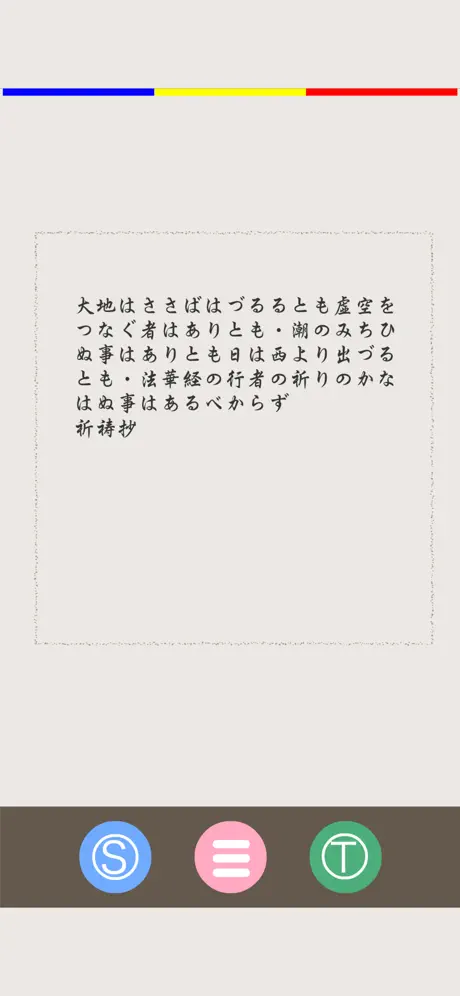 大地はささばはづるるとも虚空を
つなぐ者はありとも・潮のみちひ
ぬ事はありとも日は西より出づる
とも・法華経の行者の祈りのかな
はぬ事はあるべからず
祈祷抄
S
T